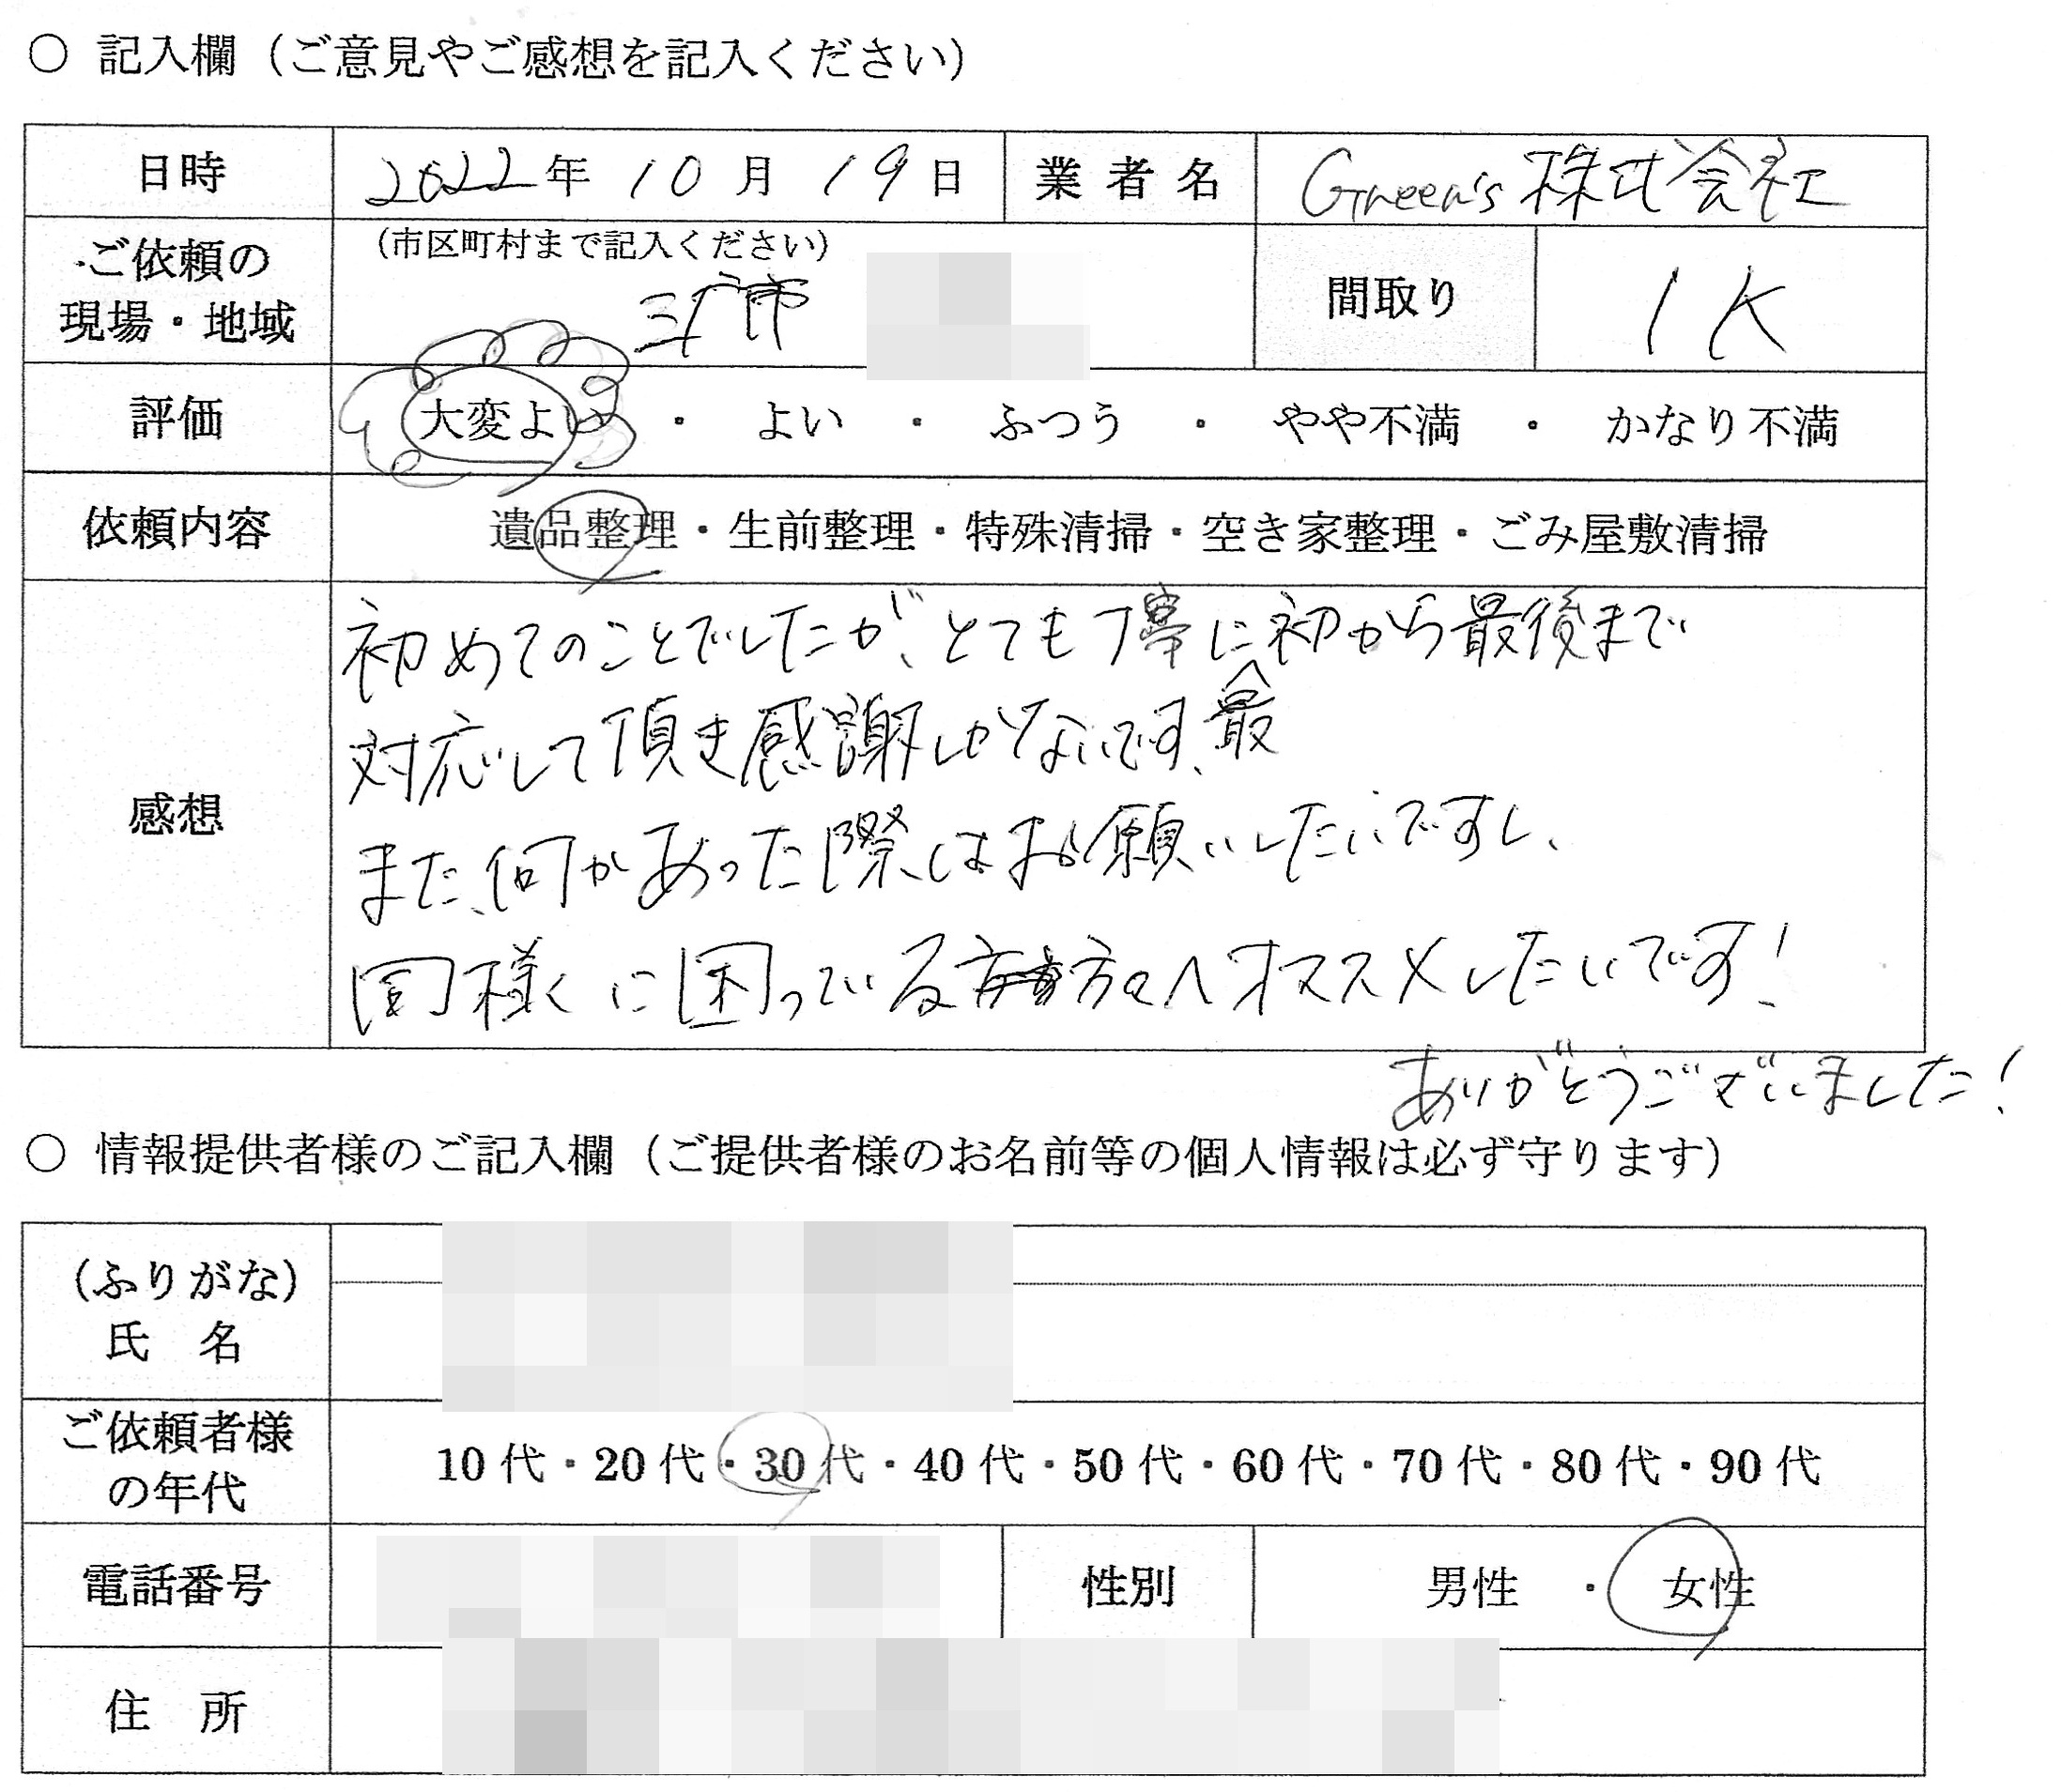 ○ 記入欄（ご意見やご感想を記入ください）
日時 2022年 10月 19日 業者名 Green's 株式会社
ご依頼の現場・地域 （市区町村まで記入ください） 間取り 1K
市
評価 大変よい ・ よい ・ ふつう ・ やや不満 ・ かなり不満
依頼内容 遺品整理・生前整理・特殊清掃・空き家整理・ごみ屋敷清掃
感想
初めてのことでしたが、とても丁寧に最初から最後まで
対応して頂き感謝しかないです、
また、何かあった際はお願いしたいですし、
同様に困っている方々へオススメしたいです！
ありがとうございました！
○ 情報提供者様のご記入欄（ご提供者様のお名前等の個人情報は必ず守ります）
（ふりがな）
氏 名
ご依頼者様の年代 10代・20代・30代・40代・50代・60代・70代・80代・90代
電話番号 性別 男性 ・ 女性
住 所